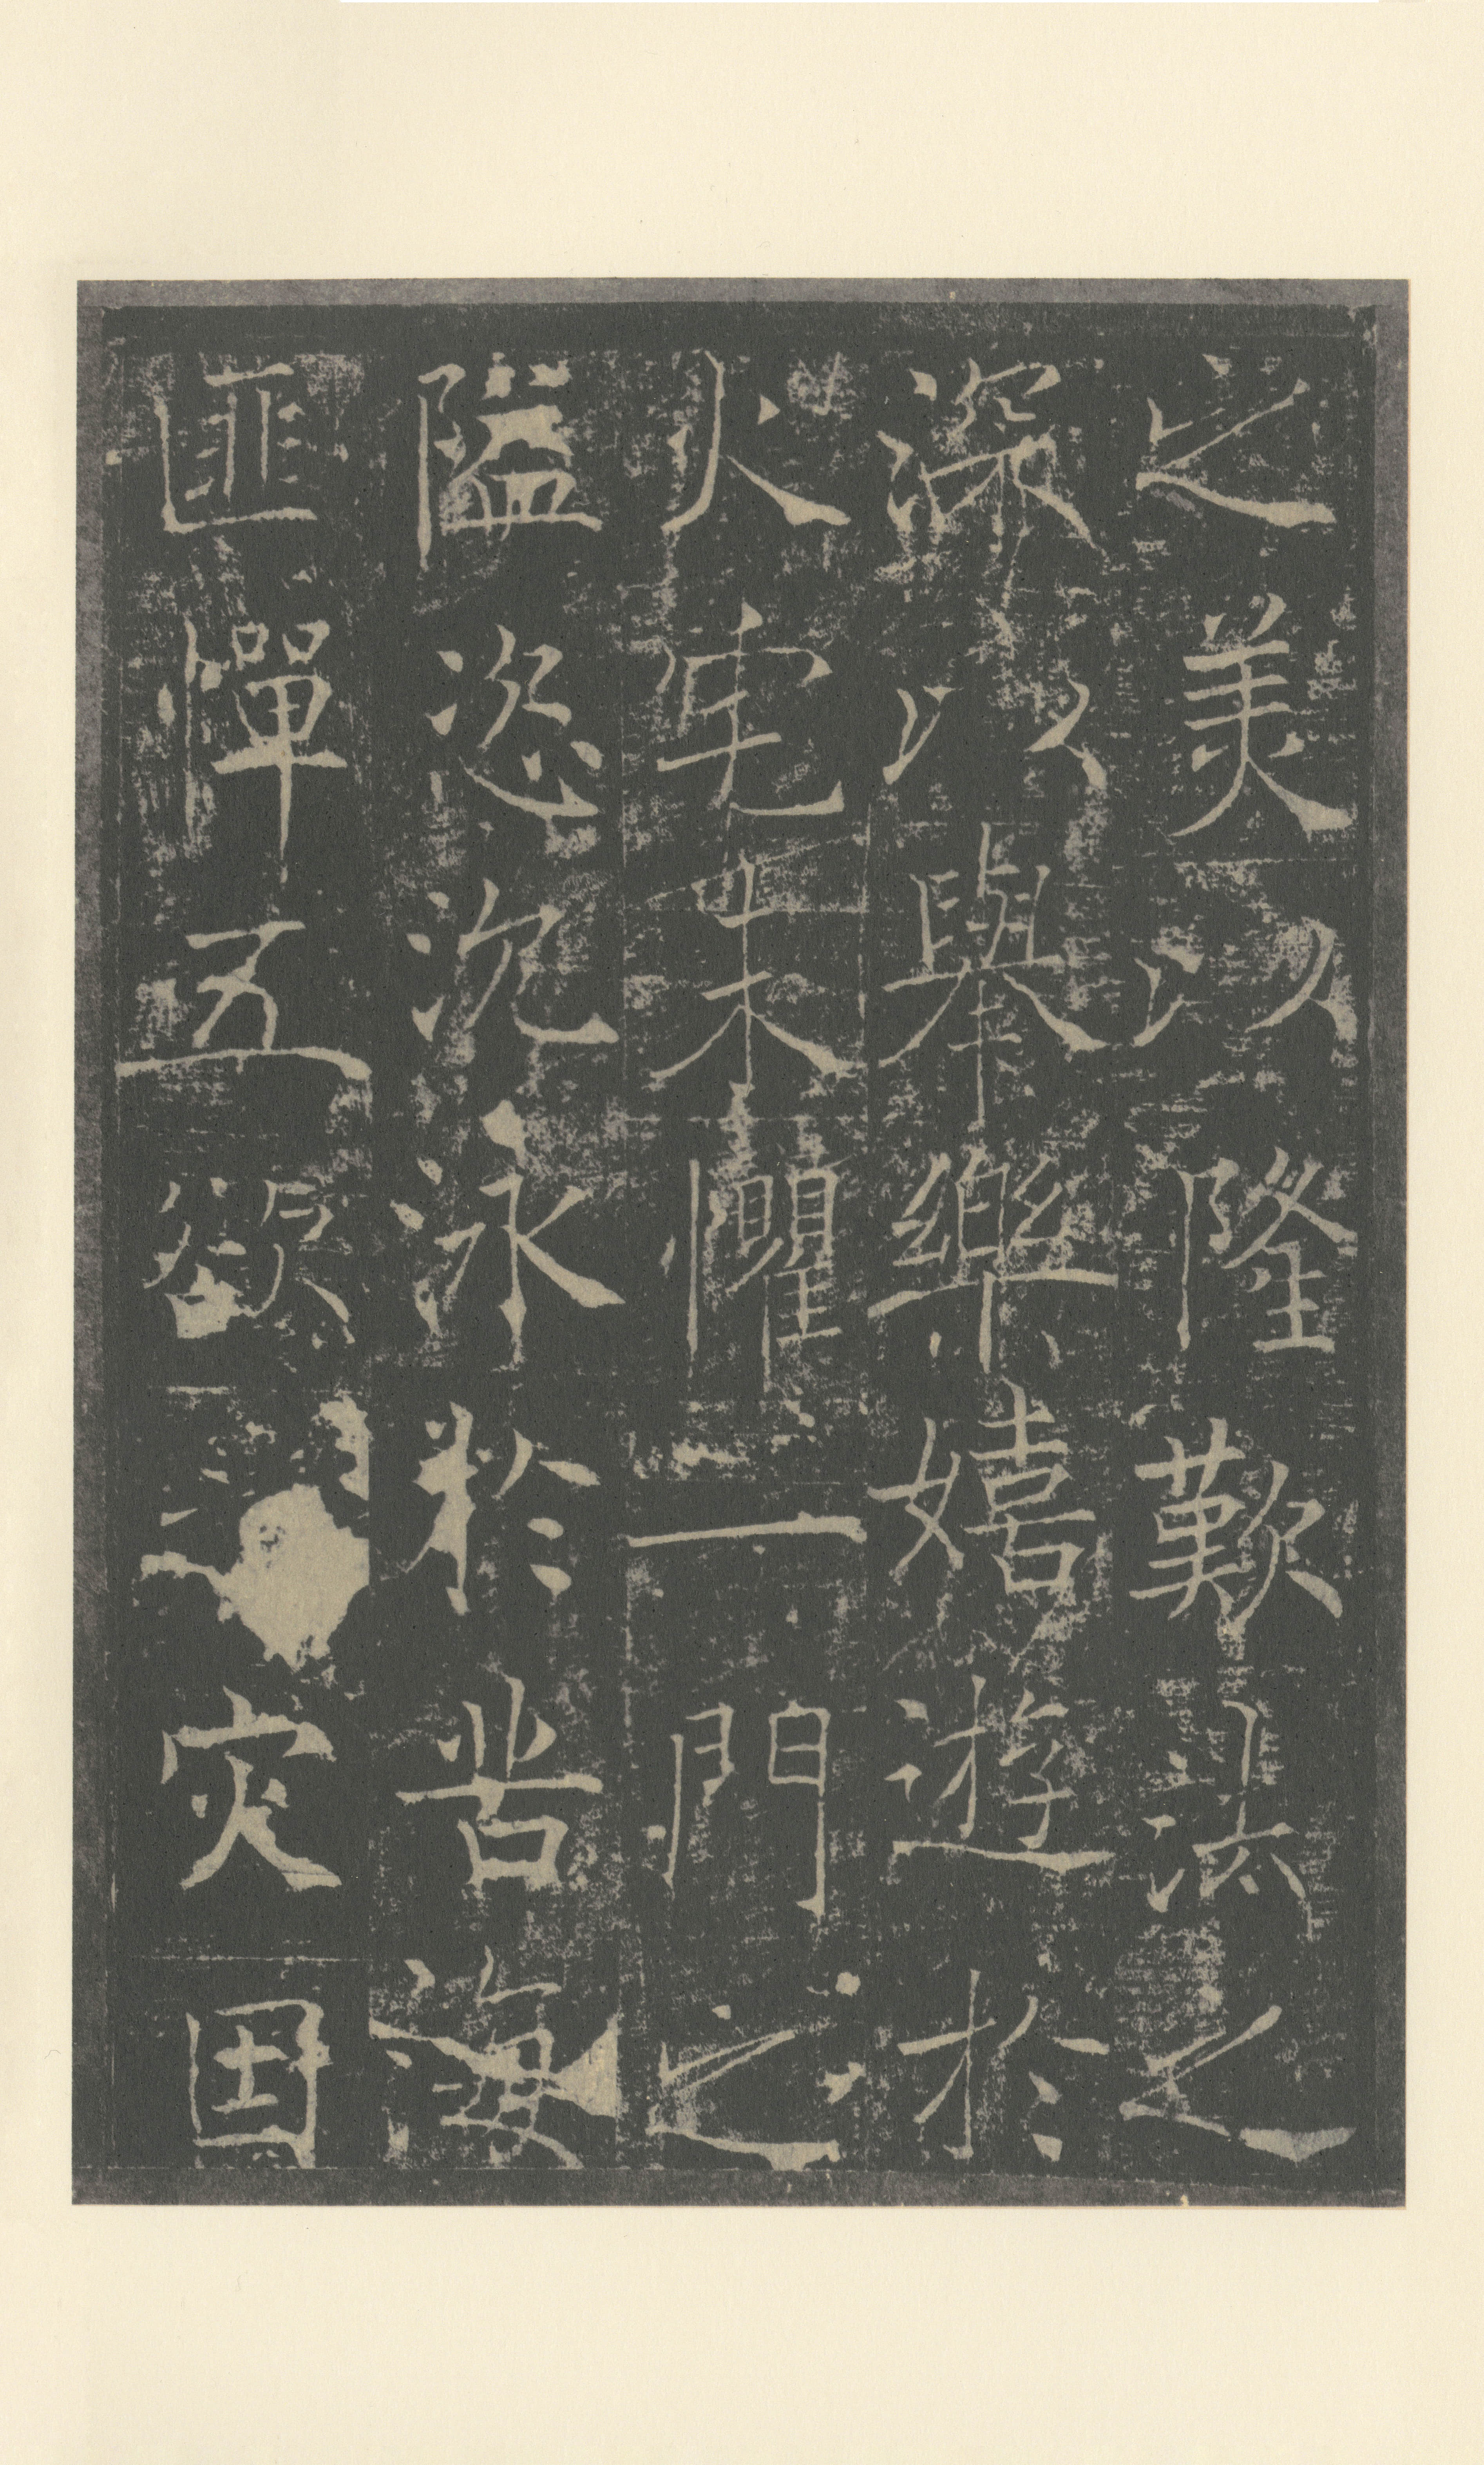 之美以隆歎法之
深以舉樂嬉遊於
火宅未懼一門之
隘恣沈泳於苦海
匪憚五欲灾因